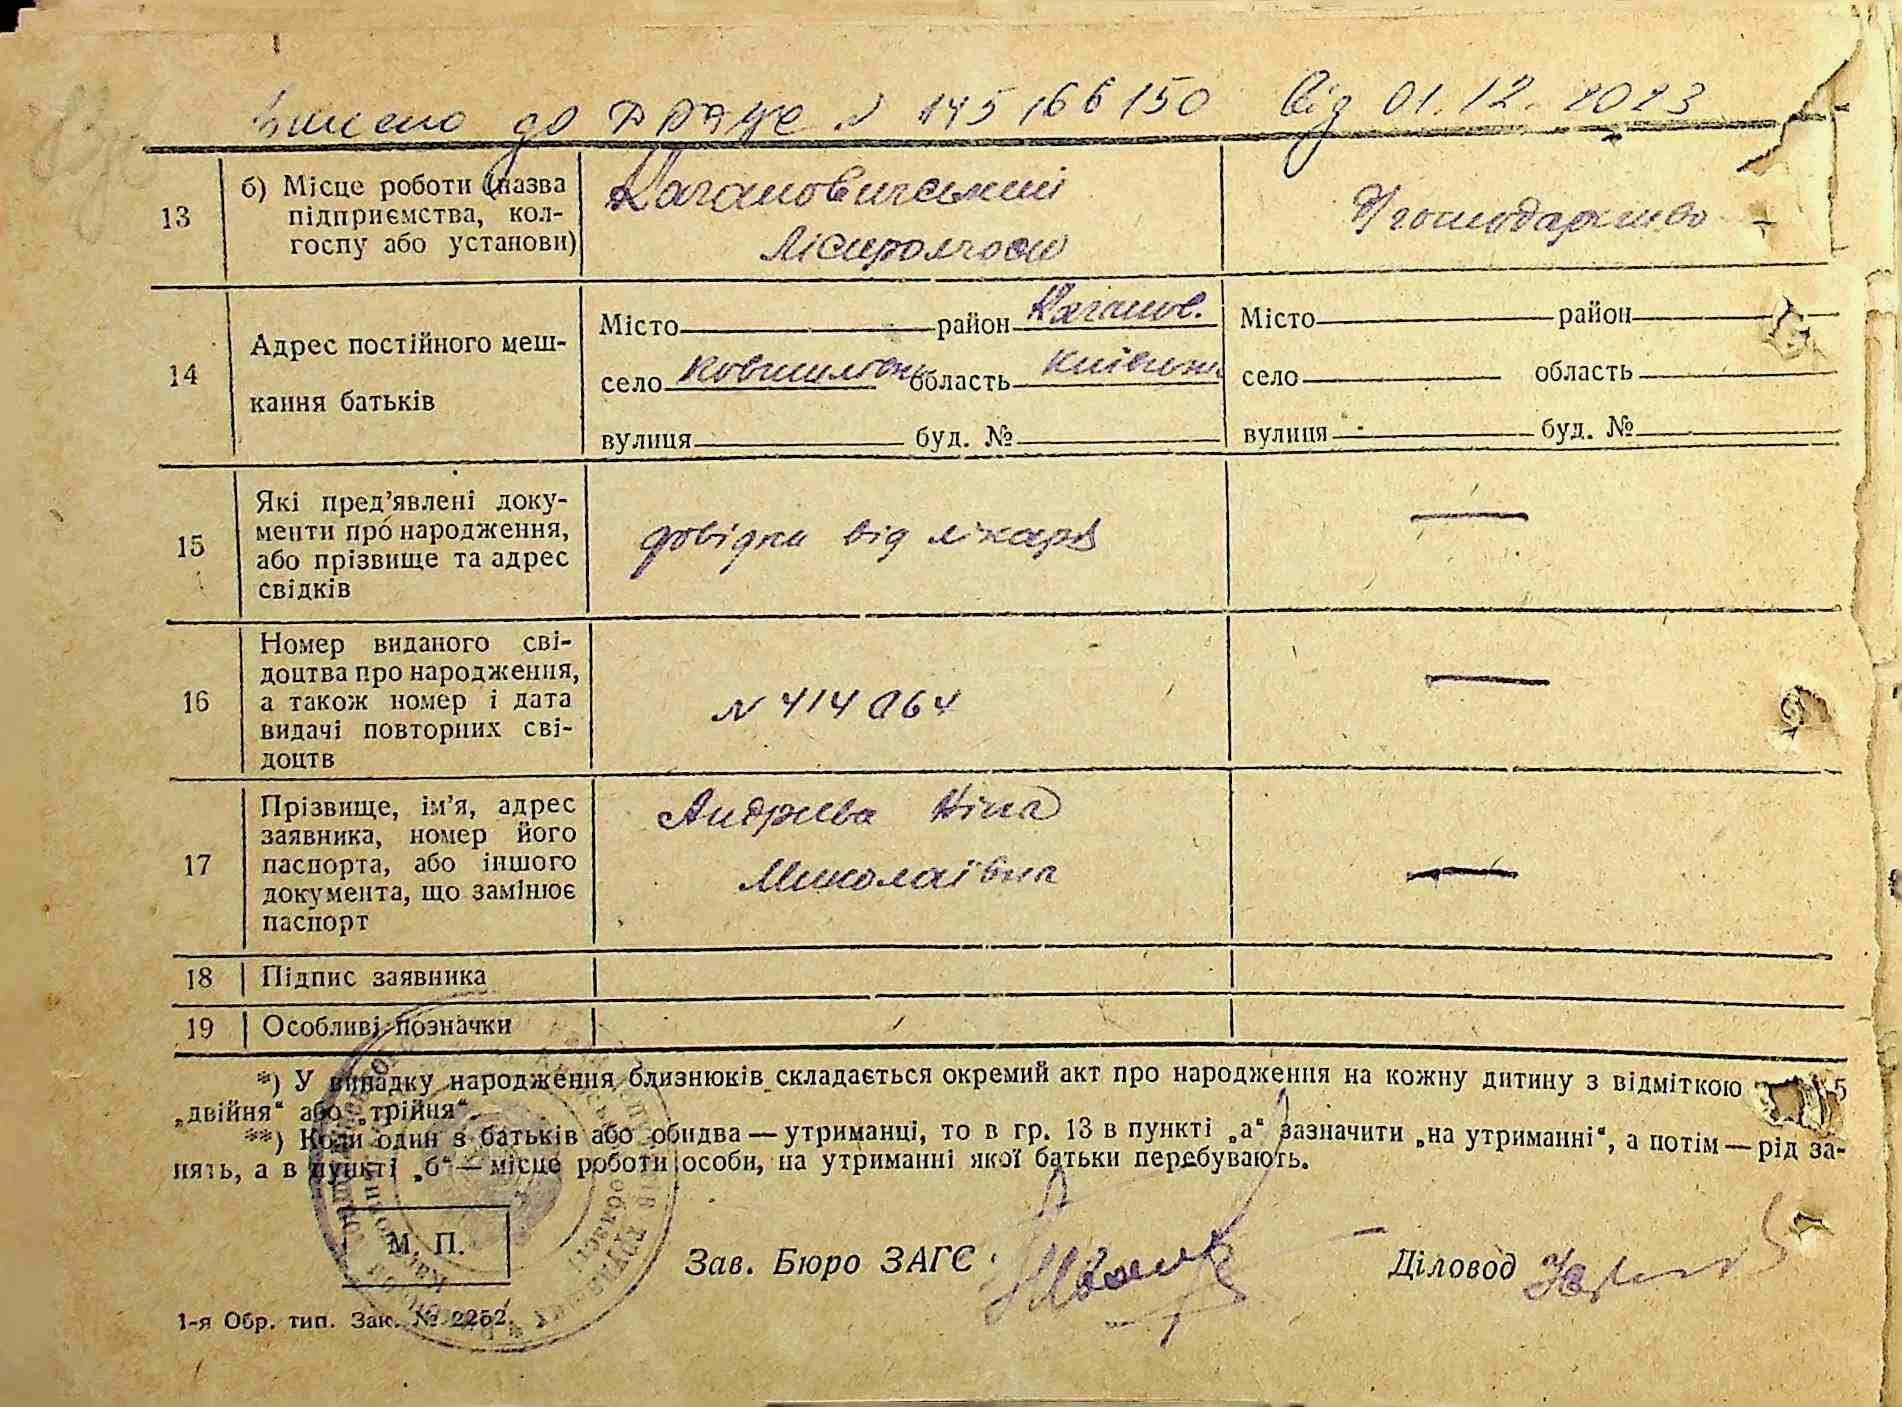 Внесено до ДРАЦС N 145166150 від 01.12.2023
13
б) Місце роботи (назва
підприємства, кол-
госпу або установи)
Кагановичський
Ліспромгосп
Д/господарство
14
Адрес постійного меш-
кання батьків
Місто район Каганов.
село область Київська
вулиця буд. №
Місто район
село область
вулиця буд. №
15
Які пред’явлені доку-
менти про народження,
або прізвище та адрес
свідків
довідка від лікаря
16
Номер виданого сві-
доцтва про народження,
а також номер і дата
видачі повторних сві-
доцтв
N 414064
17
Прізвище, ім’я, адрес
заявника, номер його
паспорта, або іншого
документа, що замінює
паспорт
Андрєєва Ніна
Миколаївна
18
Підпис заявника
19
Особливі позначки
*) У випадку народження близнюків складається окремий акт про народження на кожну дитину з відміткою
„двійня“ або „трійня“.
**) Коли один з батьків або обидва — утриманці, то в гр. 13 в пункті „а“ зазначити „на утриманні“, а потім — рід за-
нять, а в пункті „б“ — місце роботи особи, на утриманні якої батьки перебувають.
М. П.
Зав. Бюро ЗАГС
Діловод
1-я Обр. тип. Зак. № 2252.